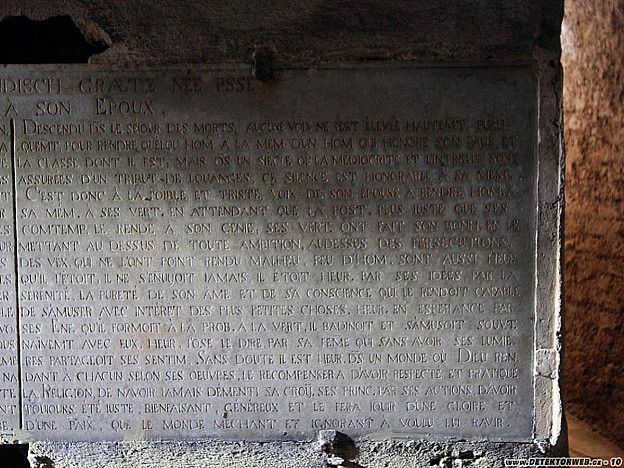 NDISCH GRÆTZ NÉE ESSE
A SON EPOUX.
DESCENDU DS LE SÉJOUR DES MORTS, AUCUNE VOIX NE S'EST ÉLEVÉE HAUTEMT, PUBLI
QUEMT POUR RENDRE QUELQU HOM A LA MEM. D'UN HOM QUI HONORE SON PAÏS ET
LA CLASSE DONT IL EST, MAIS DS UN SIECLE OÙ LA MÉDIOCRITÉ ET L'INTRIGUE SONT
ASSURÉES D'UN TRIBUT DE LOUANGES, CE SILENCE EST HONORABLE A SA MEM.
C'EST DONC A LA FOIBLE ET TRISTE VOIX DE SON ÉPOUSE A RENDRE HOM. A
SA MEM. A SES VERT. EN ATTENDANT QUE LA POST. PLUS JUSTE QUE SES
COMTEMP. LE RENDE A SON GENIE, SES VERT. ONT FAIT SON BONH. EN LE
METTANT AU DESSUS DE TOUTE AMBITION, AUDESSUS DES PERSÉCUTIONS,
DES VEX. QUI NE L'ONT POINT RENDU MALHEU. PEU D'HOM. SONT AUSSI HEUR
QU'IL L'ÉTOIT, IL NE S'ENUIOIT JAMAIS, IL ÉTOIT HEUR. PAR SES IDÉES, PAR LA
SERENITÉ, LA PURETÉ DE SON AME ET DE SA CONSCIENCE QUI LE RENDOIT CAPABLE
DE S'AMUSER AVEC INTÉRET DES PLUS PETITES CHOSES, HEUR. EN ESPERANCE PAR
SES ENF. QU'IL FORMOIT A LA PROB. A LA VERT. IL BADINOIT ET S'AMUSOIT SOUVT.
NAIVEMT AVEC EUX, HEUR. J'OSE LE DIRE, PAR SA FEME QUI SANS AVOIR SES LUMIE
RES PARTAGEOIT SES SENTIM. SANS DOUTE IL EST HEUR. DS UN MONDE OU DIEU REN
DANT A CHACUN SELON SES OEUVRES, LE RECOMPENSERA D'AVOIR RESPECTÉ ET PRATIQUÉ
LA RELIGION, DE N'AVOIR JAMAIS DÉMENTI SA CROY. SES PRINC. PAR SES ACTIONS, D'AVOIR
TOUJOURS ETÉ JUSTE, BIENFAISANT, GÉNÉREUX ET LE FERA JOUIR D'UNE GLOIRE ET
D'UNE PAIX, QUE LE MONDE MECHANT ET IGNORANT A VOULU LUI RAVIR.
WWW.DETEKTORWEB.CZ - 10